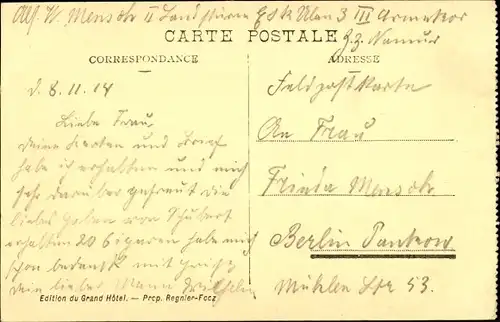 Abs. W. Mensch II Landsturm Esk Ulan 3 III Armeekor
z. Z. Namur
CARTE POSTALE
CORRESPONDANCE
ADRESSE
d. 8. 11. 14
Feldpostkarte
Liebe Frau,
An Frau
deine Karten und Brief
habe ich erhalten und mich
sehr darüber gefreut die
Frieda Mensch
liebes Gaben von Schubert
erhalten 20 Cigaren habe mich
Berlin Pankow
schon bedankt mit Gruss
dein lieber Mann Wilhelm
Mühlen Str 53.
Edition du Grand Hôtel. — Prop. Regnier-Focz